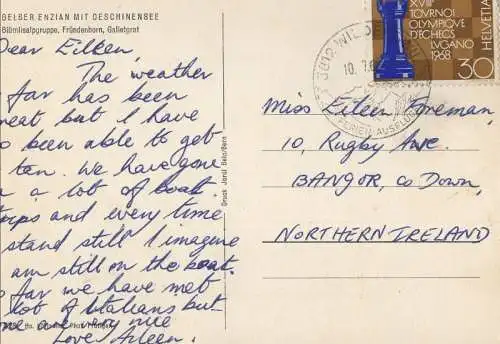 GELBER ENZIAN MIT OESCHINENSEE
Blümlisalpgruppe, Fründenhorn, Galletgrat
Dear Eileen,
The weather
so far has been
great but I have
been able to get
tan. We have gone
on a lot of boat
trips and every time
I stand still I imagine
I am still on the boat.
So far we have met
a lot of Italians but
are very nice
Love Aileen.
Druck Jordi Belp/Bern
XVIII
TOURNOI
OLYMPIQUE
D'ECHECS
LUGANO
1968
HELVETIA
30
FERIEN
AUSFLUG
Miss Eileen Foreman,
10, Rugby Ave.
BANGOR, Co Down,
NORTHERN IRELAND